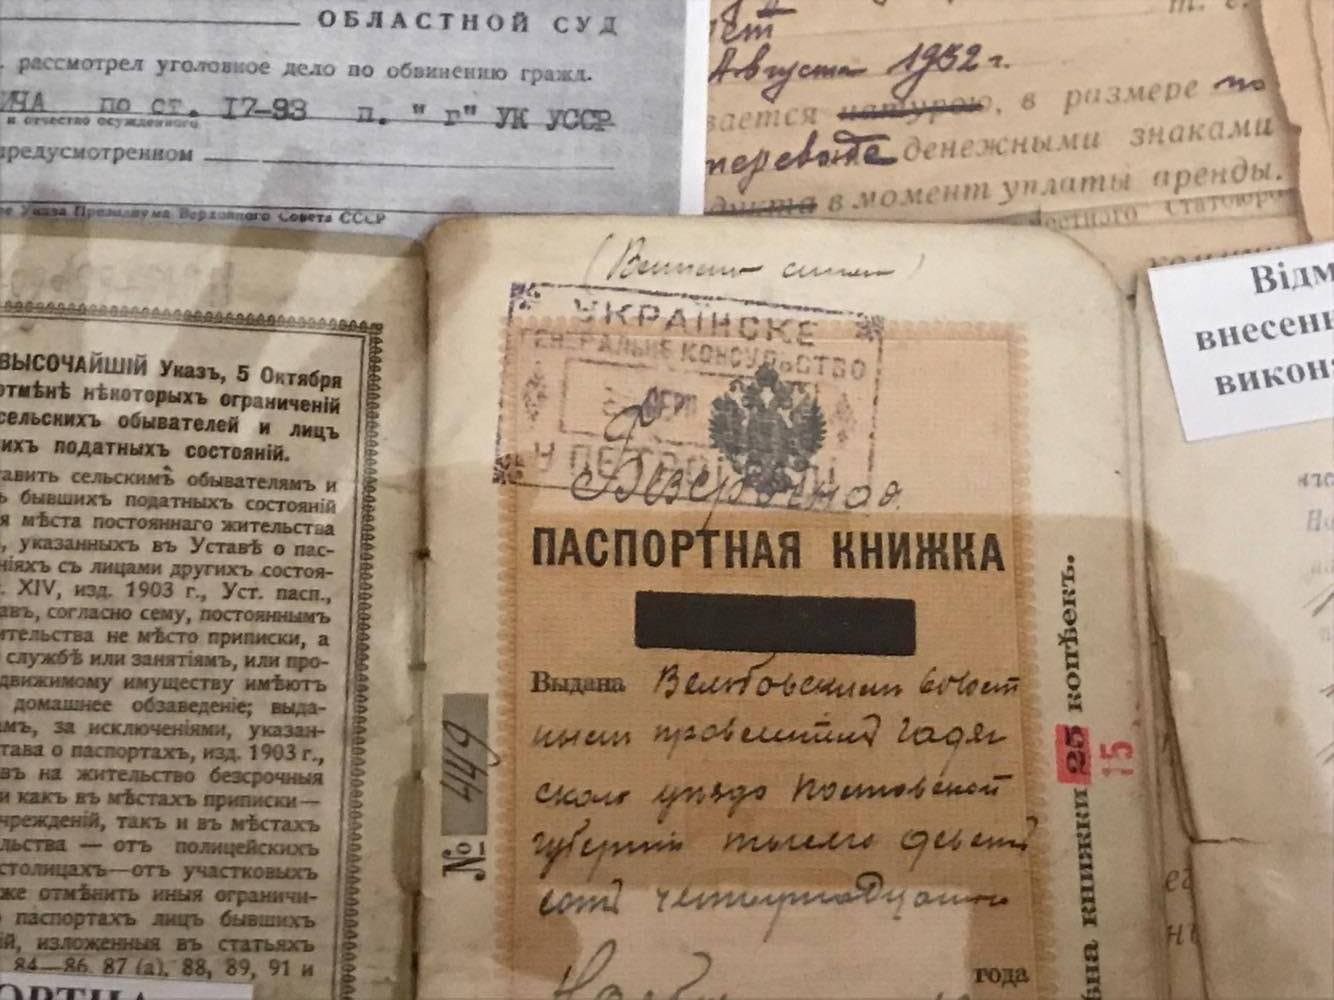 ОБЛАСТНОЙ СУД
рассмотрел уголовное дело по обвинению гражд.
ИЧА по ст. 17-93 п. "г" УК УССР
и отчество осужденного
предусмотренном
Указа Президиума Верховного Совета СССР
Августа 1932 г.
вается натурою, в размере по
переводе денежными знаками
дукта в момент уплаты аренды.
Відм
внесен
викон
ВЫСОЧАЙШІЙ Указъ, 5 Октября
отмѣнѣ нѣкоторыхъ ограниченій
сельскихъ обывателей и лицъ
ихъ податныхъ состояній.
тавить сельскимъ обывателямъ и
ъ бывшихъ податныхъ состояній
я мѣста постояннаго жительства
, указанныхъ въ Уставѣ о пас-
ніяхъ съ лицами другихъ состоя-
. XIV, изд. 1903 г., Уст. пасп.,
авъ, согласно сему, постояннымъ
ительства не мѣсто приписки, а
службѣ или занятіямъ, или про-
движимому имуществу имѣютъ
домашнее обзаведеніе; выда-
амъ, за исключеніями, указан-
тава о паспортахъ, изд. 1903 г.,
въ на жительство безсрочныя
и какъ въ мѣстахъ приписки—
чрежденій, такъ и въ мѣстахъ
льства — отъ полицейскихъ
столицахъ—отъ участковыхъ
же отмѣнить иныя ограничи-
паспортахъ лицъ бывшихъ
ій, изложенныя въ статьяхъ
84—86, 87 (а), 88, 89, 91 и
ОРТНА
УКРАЇНСКЕ
ГЕНЕРАЛЬНЕ КОНСУЛЬСТВО
СЕРП
Безсрочная
ПАСПОРТНАЯ КНИЖКА
Выдана
правленіемъ Гадяч
скаго уѣзда Полтавской
губерніи тысяча девять
сотъ четырнадцатого
года
№ 449
книжки 25 копѣекъ.
15